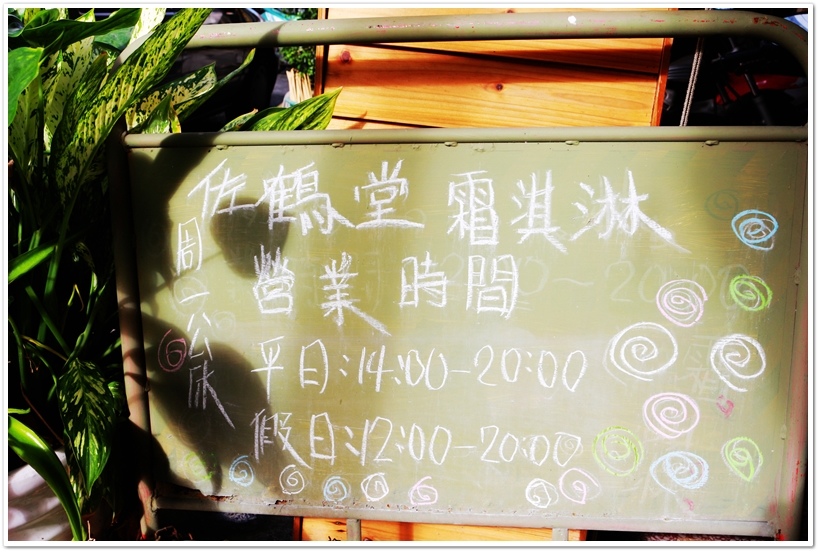 佐鶴堂 霜淇淋
營業時間
平日:14:00-20:00
假日:12:00-20:00
周一公休